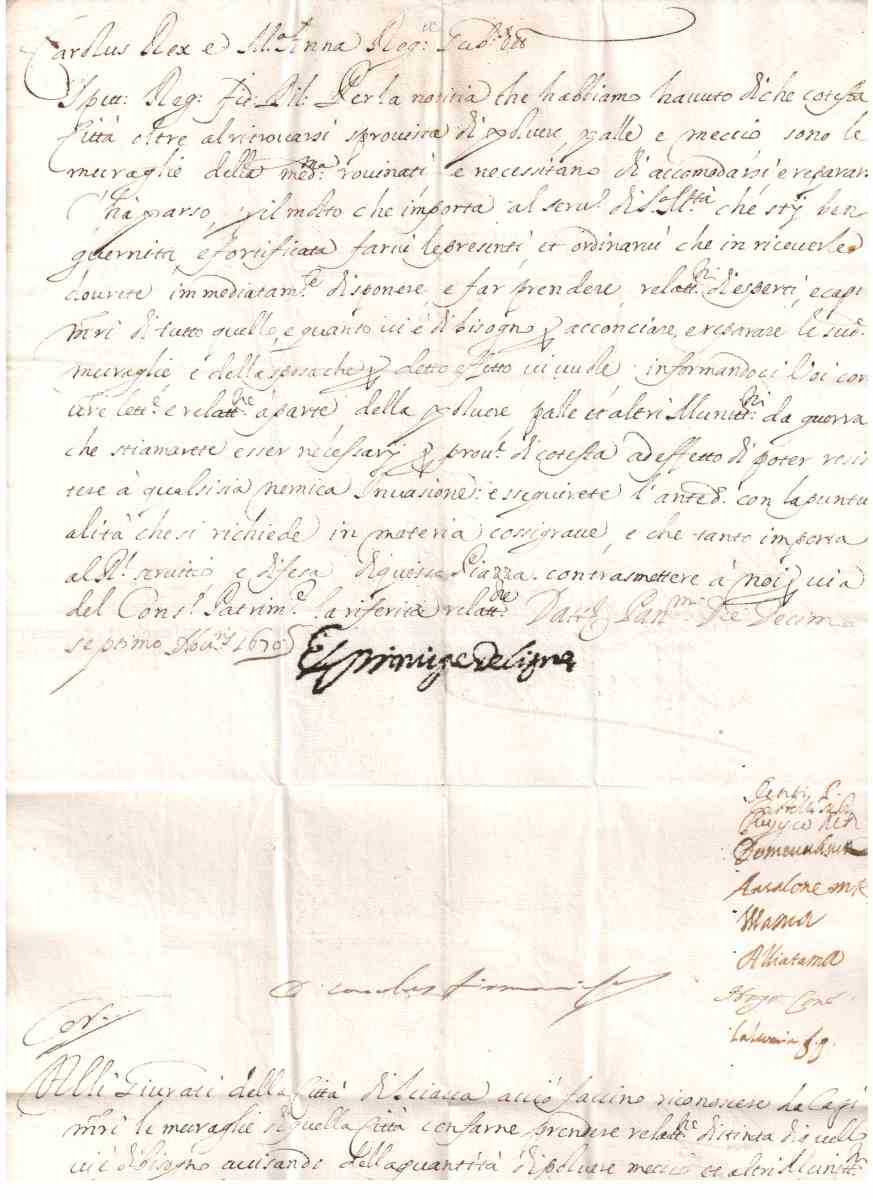 Carolus Rex e M.ª Anna Reg.ª Gub.
Spett. Reg: Fid: Dil: Per la notitia che habbiamo havuto di che cotesta
Città oltre al ritrovarsi sprovista di polvere, palle e meccio sono le
muraglie della med.ma rovinati e necessitano di accomodarsi e reparar.
C'hà parso, p il molto che importa al serv.º di S. M.tà che stij ben
guernita, e fortificata farvi le presenti, et ordinarvi che in riceverle
dovrete immediatam.te disponere, e far prendere relatt.ni di esperti, e capi
mri di tutto quello, e quanto vi è di bisogno p acconciare, e reparare le sud.
muraglie e della spesa che p detto effetto vi vuole informandoci Voi con
vre lett.e e relatt.ne à parte della polvere palle et altri Muniti.ni da guerra
che stiamarete esser necessarij p prov.e di cotesta ad effetto di poter resis
tere à qualsisia nemica Invasione: esseguirete l'anted. con la puntu
alità che si richiede in materia cossi grave, e che tanto importa
al R.l servitio e difesa di questa Piazza con trasmettere à noi p via
del Cons.º Patrim.le la riferita relatt.ne Datt. Pan.mi Die Decimo
septimo 1670
El Principe de Ligne
Alliata
Cor.
Alli Giurati della Città di Sciacca acciò faccino riconoscere da Capi
mri le muraglie di quella Città con farne prendere relatt.ne distinta di quello
vi è di bisogno avisando della quantità di polvere meccio et altri Muniti.ni